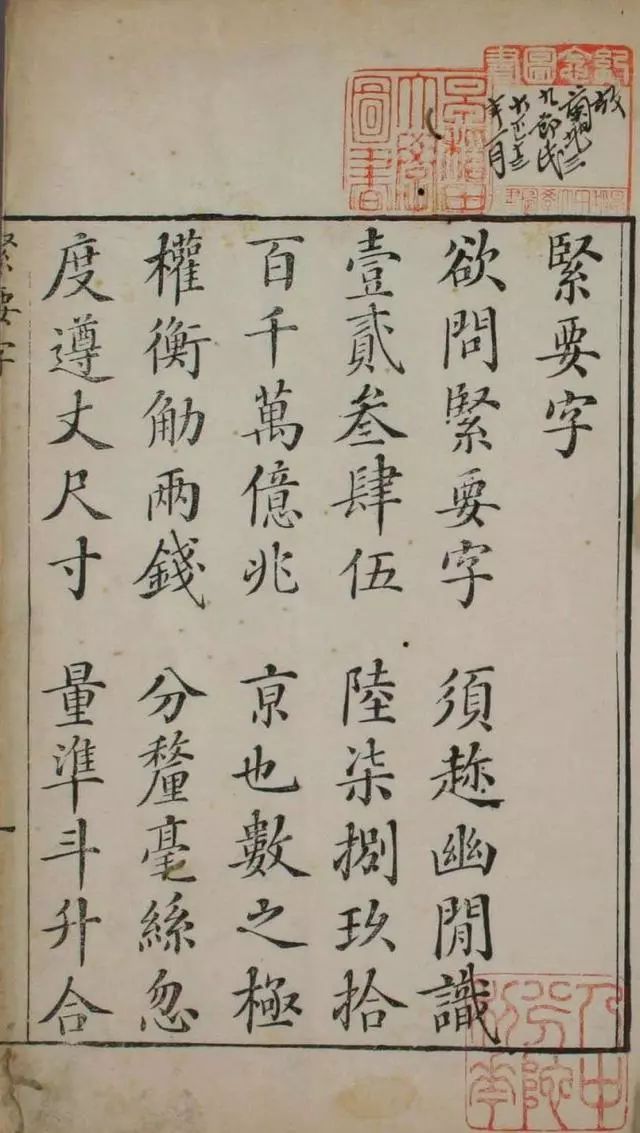 緊要字
欲問緊要字　須趂幽閒識
壹貳叄肆伍　陸柒捌玖拾
百千萬億兆　亰也數之極
權衡觔兩錢　分釐毫絲忽
度遵丈尺寸　量準斗升合
緊要字　一
故
九郎氏
圖書